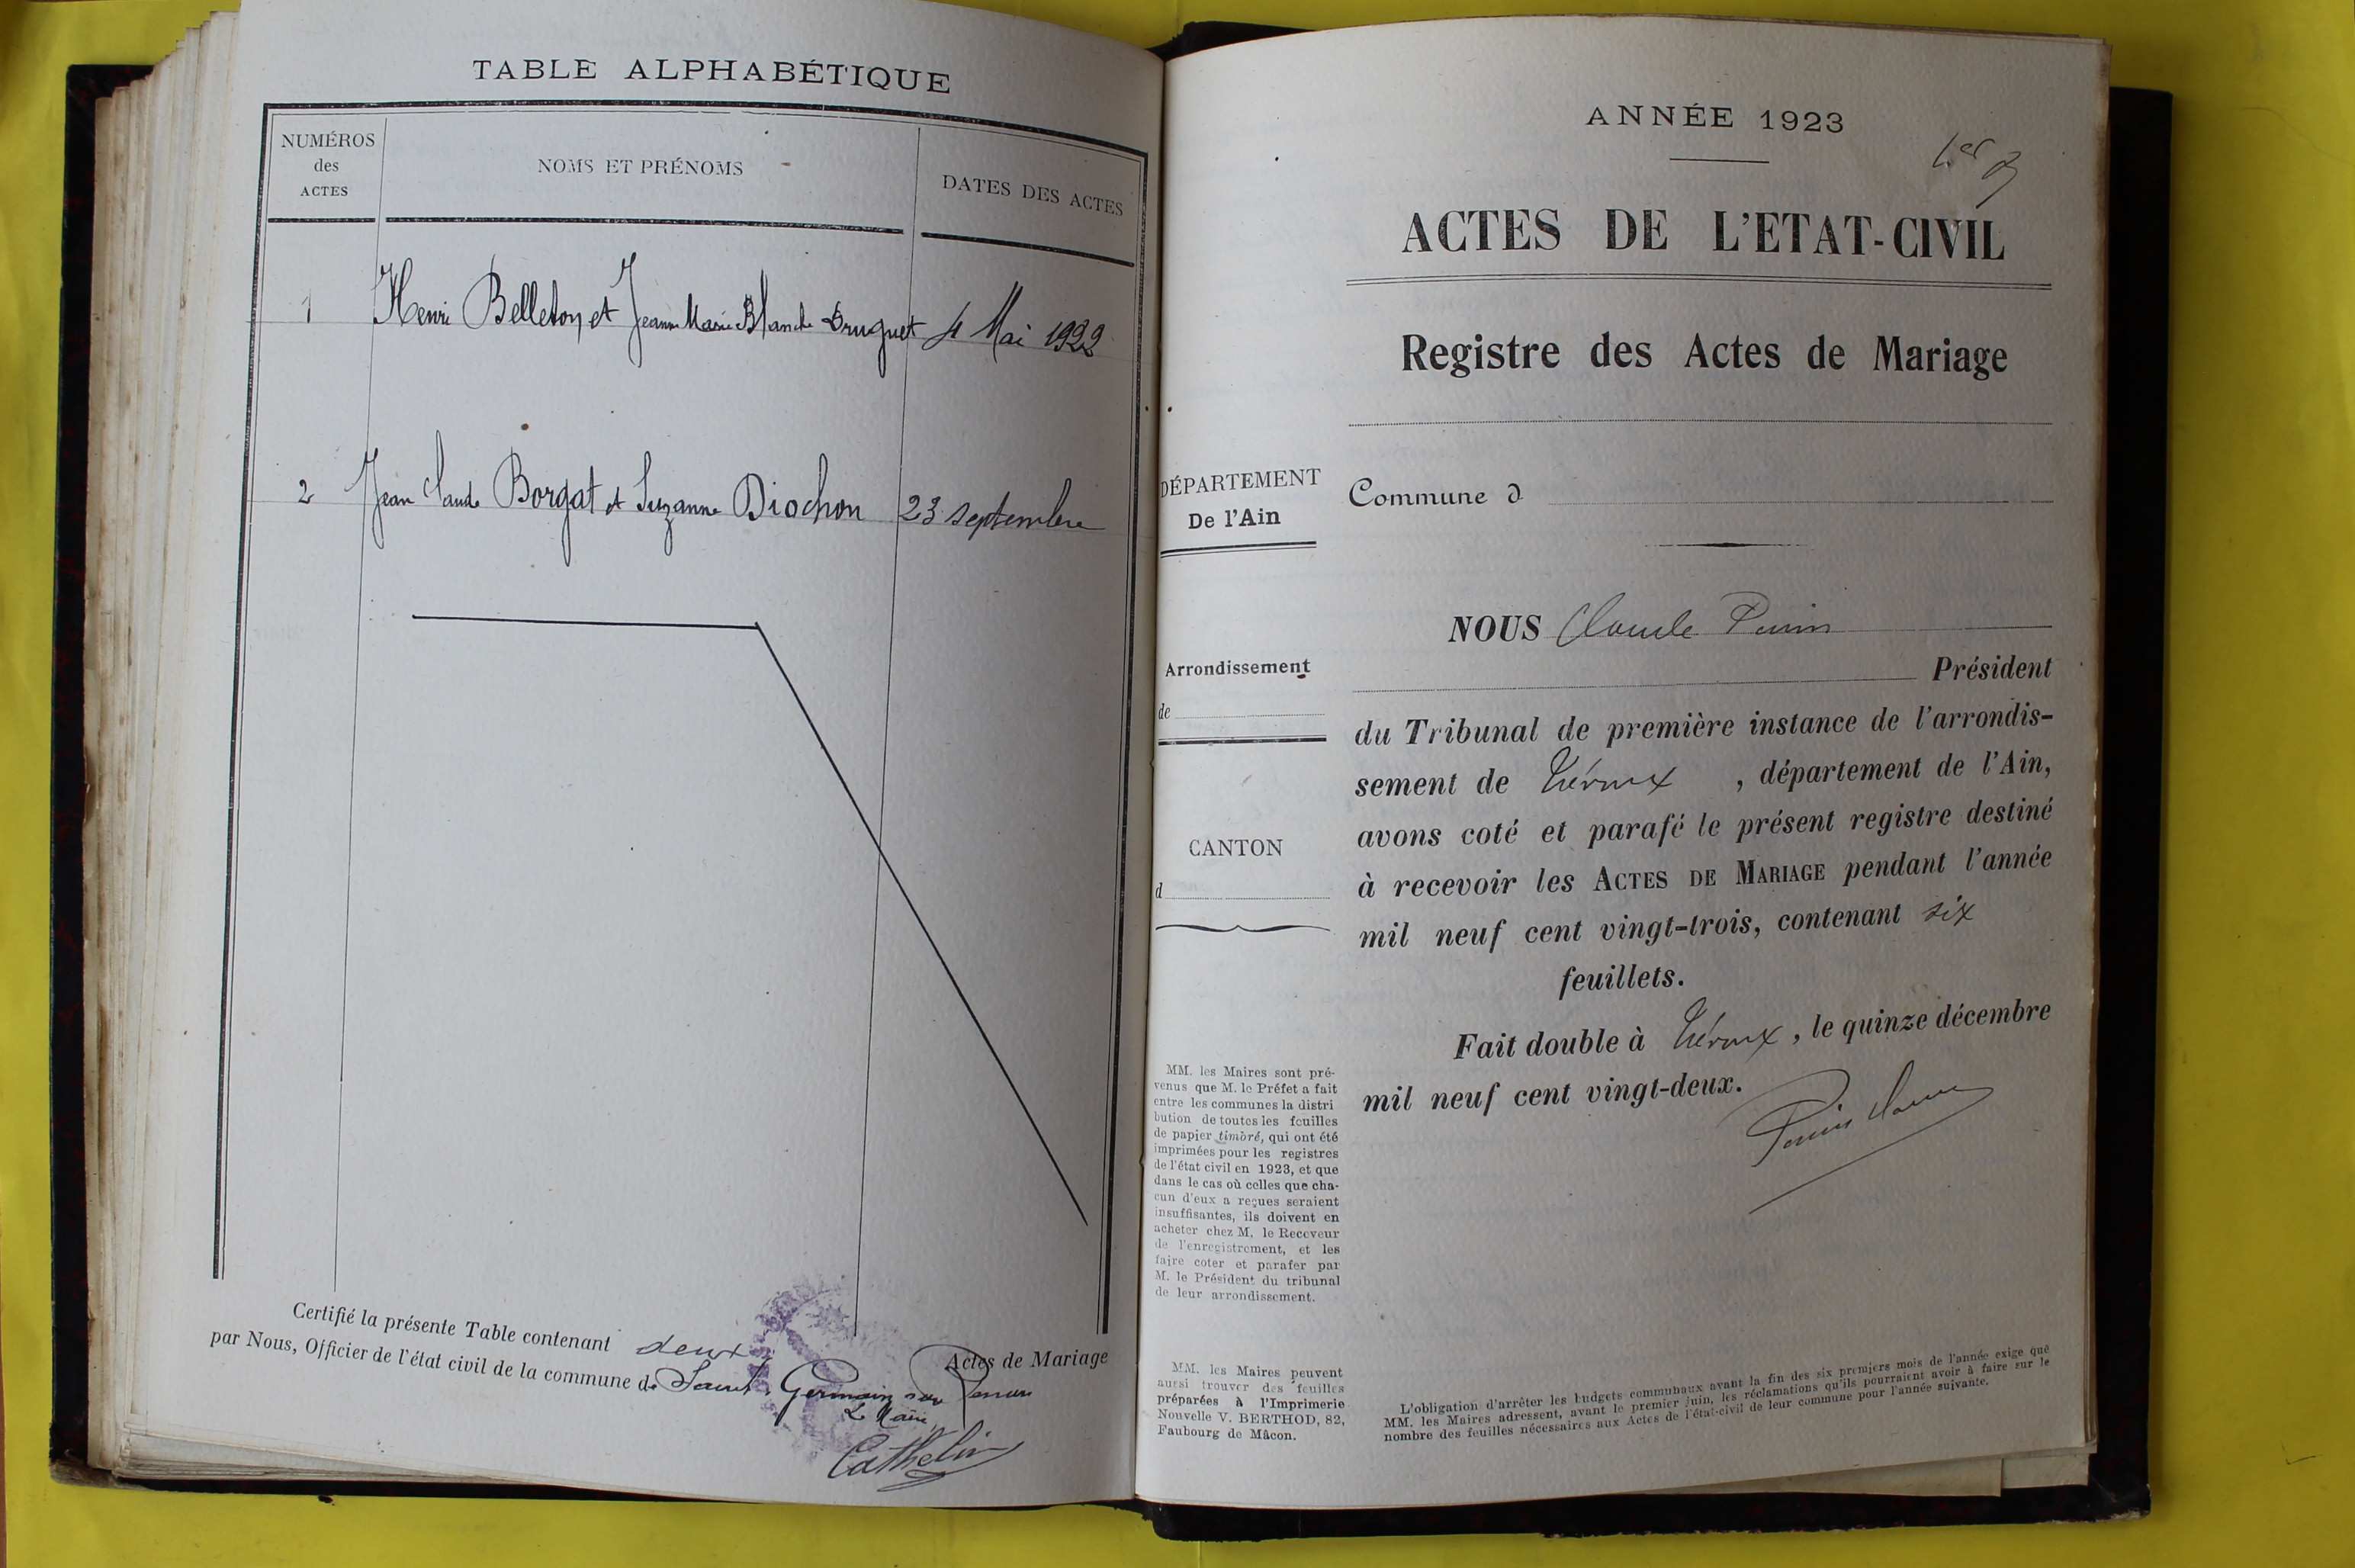 TABLE ALPHABÉTIQUE
NUMÉROS
des
ACTES
NOMS ET PRÉNOMS
DATES DES ACTES
1 Henri Belleton et Jeanne Marie Blanche Druguet 4 Mai 1922
2 Jean Claude Borgat et Suzanne Diochon 23 septembre
Certifié la présente Table contenant deux
Actes de Mariage
par Nous, Officier de l'état civil de la commune de Saint-Germain sur Renon
Le Maire
Cathelin
ANNÉE 1923
1er
ACTES DE L'ETAT-CIVIL
Registre des Actes de Mariage
DÉPARTEMENT
De l'Ain
Commune d
Arrondissement
de
CANTON
d
NOUS Claude
Président
du Tribunal de première instance de l'arrondis-
sement de Trévoux , département de l'Ain,
avons coté et parafé le présent registre destiné
à recevoir les ACTES DE MARIAGE pendant l'année
mil neuf cent vingt-trois, contenant six
feuillets.
Fait double à Trévoux, le quinze décembre
mil neuf cent vingt-deux.
MM. les Maires sont pré-
venus que M. le Préfet a fait
entre les communes la distri
bution de toutes les feuilles
de papier timbré, qui ont été
imprimées pour les registres
de l'état civil en 1923, et que
dans le cas où celles que cha-
cun d'eux a reçues seraient
insuffisantes, ils doivent en
acheter chez M. le Receveur
de l'enregistrement, et les
faire coter et parafer par
M. le Président du tribunal
de leur arrondissement.
MM. les Maires peuvent
aussi trouver des feuilles
préparées à l'Imprimerie
Nouvelle V. BERTHOD, 82,
Faubourg de Mâcon.
L'obligation d'arrêter les budgets communaux avant la fin des six premiers mois de l'année exige que
MM. les Maires adressent, avant le premier juin, les réclamations qu'ils pourraient avoir à faire sur le
nombre des feuilles nécessaires aux Actes de l'état-civil de leur commune pour l'année suivante.